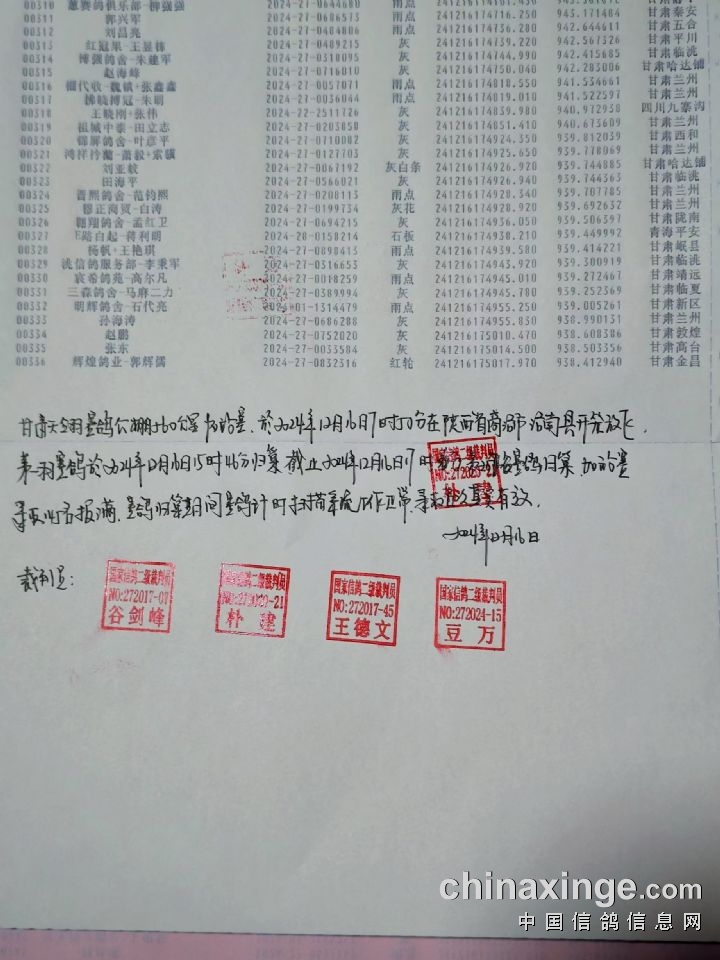 00310 惠赛鸽俱乐部-柳强强 2024-27-0644680 雨点
00311 郭兴军 2024-27-0686573 雨点 945.171484 甘肃秦安
00312 刘昌亮 2024-27-0384404 雨点 942.644611 甘肃五合
00313 红冠果-王昱栋 2024-27-0489215 灰 942.567326 甘肃平川
00314 博强鸽舍-朱建军 2024-27-0310095 灰 241216174744.990 942.442066 甘肃临洮
00315 赵海峰 2024-27-0716010 灰 241216174750.040 942.283006 甘肃哈达铺
00316 2024-27-0057071 雨点 241216174818.550 941.534661 甘肃兰州
00317 拂晓搏冠-朱明 2024-27-0036044 雨点 241216174819.010 941.522597 甘肃兰州
00318 王晓刚+张伟 2024-22-2511726 灰 241216174839.980 940.972938 四川九寨沟
00319 祖城中泰-田立志 2024-27-0203858 灰 241216174851.410 940.673609 甘肃兰州
00320 锦屏鸽舍-叶彦平 2024-27-0710082 灰 241216174924.530 939.812039 甘肃西和
00321 2024-27-0127703 灰 241216174925.150 939.778069 甘肃兰州
00322 刘亚毅 2024-27-0067192 灰白条 241216174926.920 939.744885 甘肃哈达铺
00323 田海平 2024-27-0566021 灰 241216174926.940 939.744363 甘肃临洮
00324 晋熙鸽舍-范钧熙 2024-27-0208113 雨点 241216174928.340 939.707785 甘肃兰州
00325 穆正商贸-白涛 2024-27-0199734 灰花 241216174928.920 939.692632 甘肃兰州
00326 翱翔鸽舍-孟红卫 2024-27-0694215 灰 241216174936.050 939.506397 甘肃陇南
00327 路白起-蒋利明 2024-28-0158214 石板 241216174938.250 939.448992 青海平安
00328 杨帆+王艳琪 2024-27-0898413 雨点 241216174939.580 939.414221 甘肃岷县
00329 洮信鸽服务部-李秉军 2024-27-0316653 灰 241216174943.930 939.300591 甘肃临洮
00330 袁希鸽苑-高尔凡 2024-27-0018259 雨点 241216174945.010 939.272467 甘肃靖远
00331 三森鸽舍-马麻二力 2024-27-0389994 灰 241216174945.780 939.252369 甘肃临夏
00332 明辉鸽舍-石代亮 2024-01-1314479 雨点 241216174955.250 939.005261 甘肃新区
00333 孙海涛 2024-27-0686288 灰 241216174955.830 938.990131 甘肃兰州
00334 赵鹏 2024-27-0752020 灰 241216175010.470 938.608386 甘肃敦煌
00335 张东 2024-27-0033584 灰 241216175014.500 938.503356 甘肃高台
00336 辉煌鸽业-郭辉儒 2024-27-0832356 红轮 241216175017.970 938.412940 甘肃金昌
甘肃天翊赛鸽公棚560公里加站赛,於2024年12月16日7时50分在陕西省商洛市洛南县开笼放飞,
第一羽赛鸽於2024年12月16日15时46分归巢截止2024年12月16日17时 赛鸽归巢,加站赛
录取名次报满,赛鸽归巢期间赛鸽计时扫描系统工作正常,录取名次真实有效.
2024年12月16日
裁判员:
国家信鸽二级裁判员 国家信鸽二级裁判员 国家信鸽二级裁判员 国家信鸽二级裁判员
NO:272017-07 NO:272020-21 NO:272017-45 NO:272024-15
谷剑峰 朴建 王德文 豆万
chinaxinge.com
中国信鸽信息网